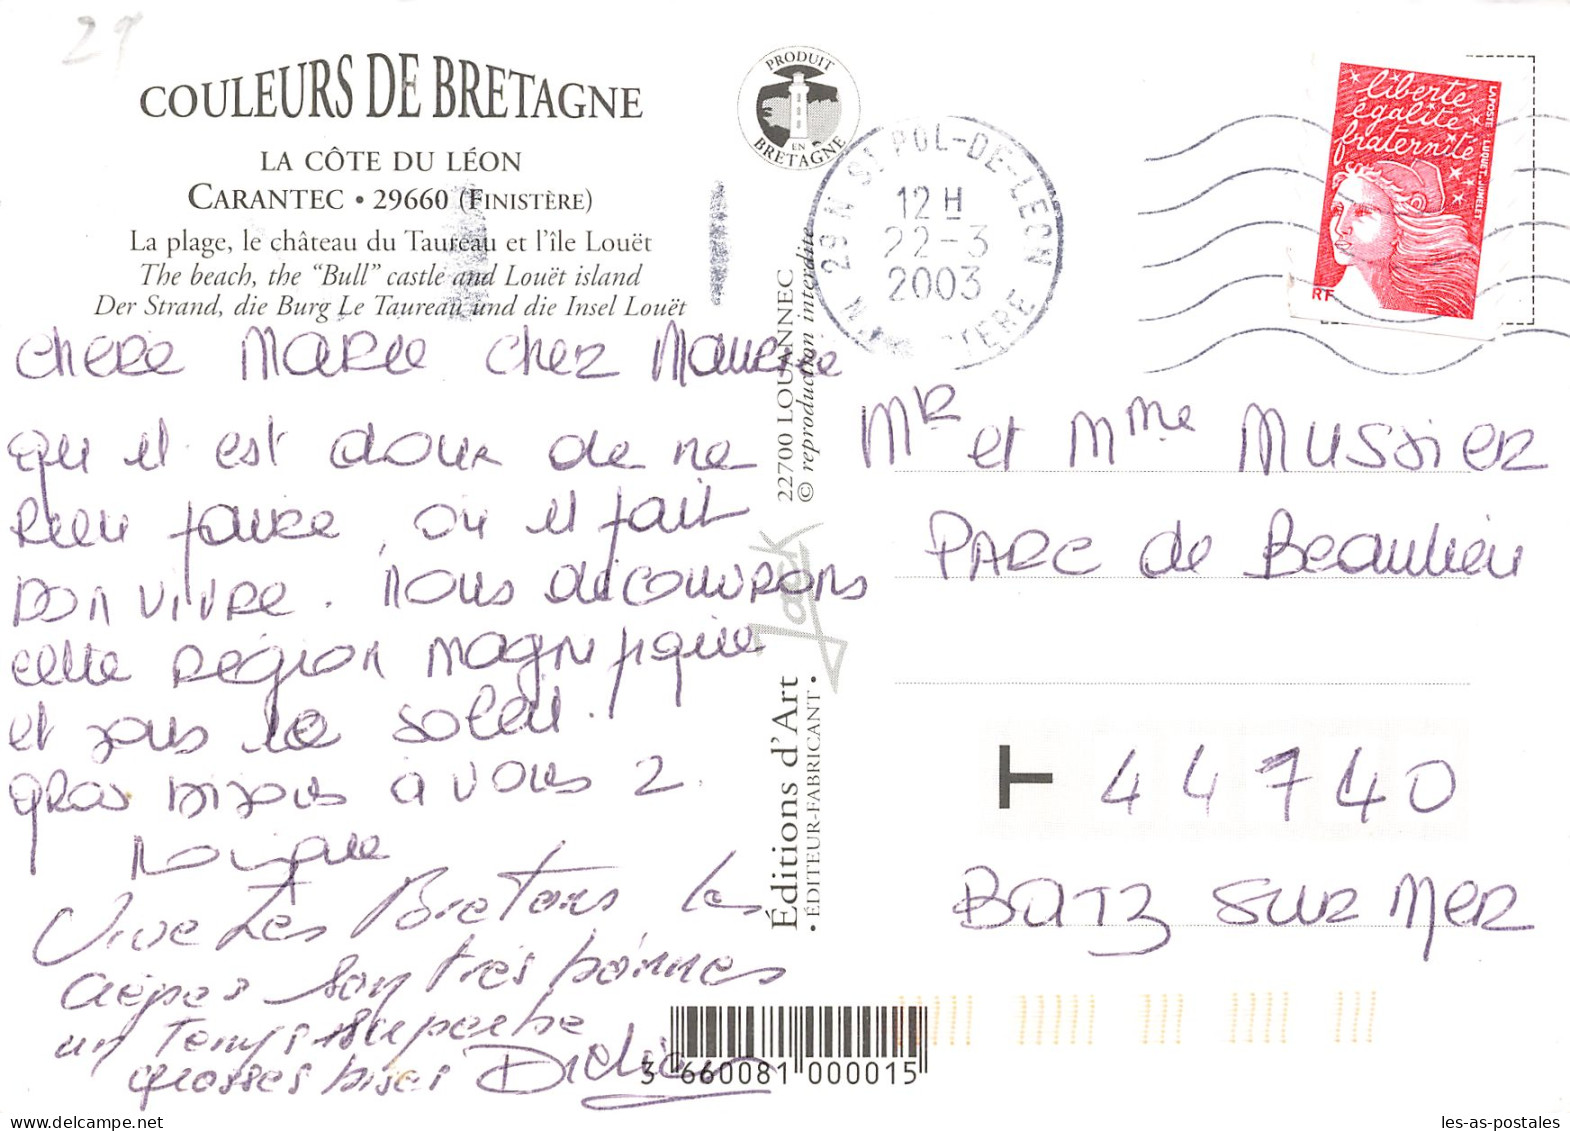 29
COULEURS DE BRETAGNE
LA CÔTE DU LÉON
CARANTEC • 29660 (FINISTÈRE)
La plage, le château du Taureau et l'île Louët
The beach, the "Bull" castle and Louët island
Der Strand, die Burg Le Taureau und die Insel Louët
PRODUIT
EN
BRETAGNE
29 N ST POL-DE-LEON
12 H
22-3
2003
FINISTERE
liberté
égalité
fraternité
LAPOSTE LUQUET-JUMELET
RF
Chere Marie Cher Maurice
Qu il est doux de ne
Rien faire, où il fait
bon vivre. Nous découvrons
cette région magnifique
et sous le soleil.
gros bisous à vous 2.
Monique
Vive Les Bretons les
crêpes sont très bonnes
un temps superbe
grosses bises Didier
22700 LOUANNEC
© reproduction interdite
Jack
Éditions d'Art
• ÉDITEUR-FABRICANT •
3 660081 000015
Mr et Mme Mussier
Parc de Beaulieu
T 44740
Batz sur Mer
les-as-postales